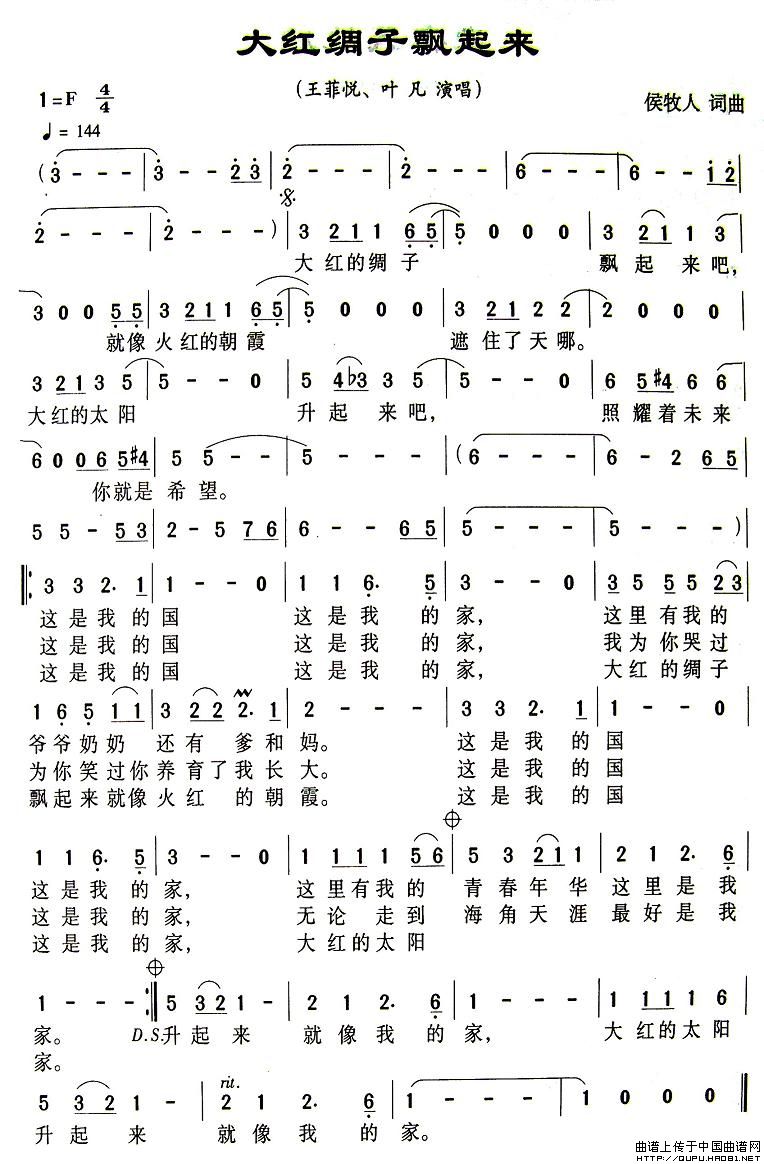 大红绸子飘起来
(王菲悦、叶 凡 演唱)
1=F 4/4
侯牧人 词曲
♩= 144
(3 - - - 3 - - 2 3 2 - - - 2 - - - 6 - - - 6 - - 1 2
2 - - - 2 - - - ) 3 2 1 1 6 5 5 0 0 0 3 2 1 1 3
大红的绸子 飘起来吧,
3 0 0 5 5 3 2 1 1 6 5 5 0 0 0 3 2 1 2 2 2 0 0 0
就像火红的朝霞 遮住了天哪。
3 2 1 3 5 5 - - 0 5 4 b3 3 5 5 - - 0 6 5 #4 6 6
大红的太阳 升起来吧, 照耀着未来
6 0 0 6 5 #4 5 5 - - 5 - - - (6 - - - 6 - 2 6 5
你就是希望。
5 5 - 5 3 2 - 5 7 6 6 - - 6 5 5 - - - 5 - - - )
3 3 2· 1 1 - - 0 1 1 6· 5 3 - - 0 3 5 5 5 2 3
这是我的国 这是我的家, 这里有我的
这是我的国 这是我的家, 我为你哭过
这是我的国 这是我的家, 大红的绸子
1 6 5 1 1 3 2 2 2· 1 2 - - - 3 3 2· 1 1 - - 0
爷爷奶奶 还有爹和妈。 这是我的国
为你笑过你养育了我长大。 这是我的国
飘起来就像火红的朝霞。 这是我的国
1 1 6· 5 3 - - 0 1 1 1 1 5 6 5 3 2 1 1 2 1 2· 6
这是我的家, 这里有我的 青春年华 这里是我
这是我的家, 无论走到 海角天涯 最好是我
这是我的家, 大红的太阳
1 - - - 5 3 2 1 - 2 1 2· 6 1 - - - 1 1 1 1 6
家。 D.S. 升起来 就像我的家, 大红的太阳
家。
rit.
5 3 2 1 - 2 1 2· 6 1 - - - 1 0 0 0
升起来 就像我的家。
曲谱上传于中国曲谱网
HTTP://QUPU.HAO81.NET